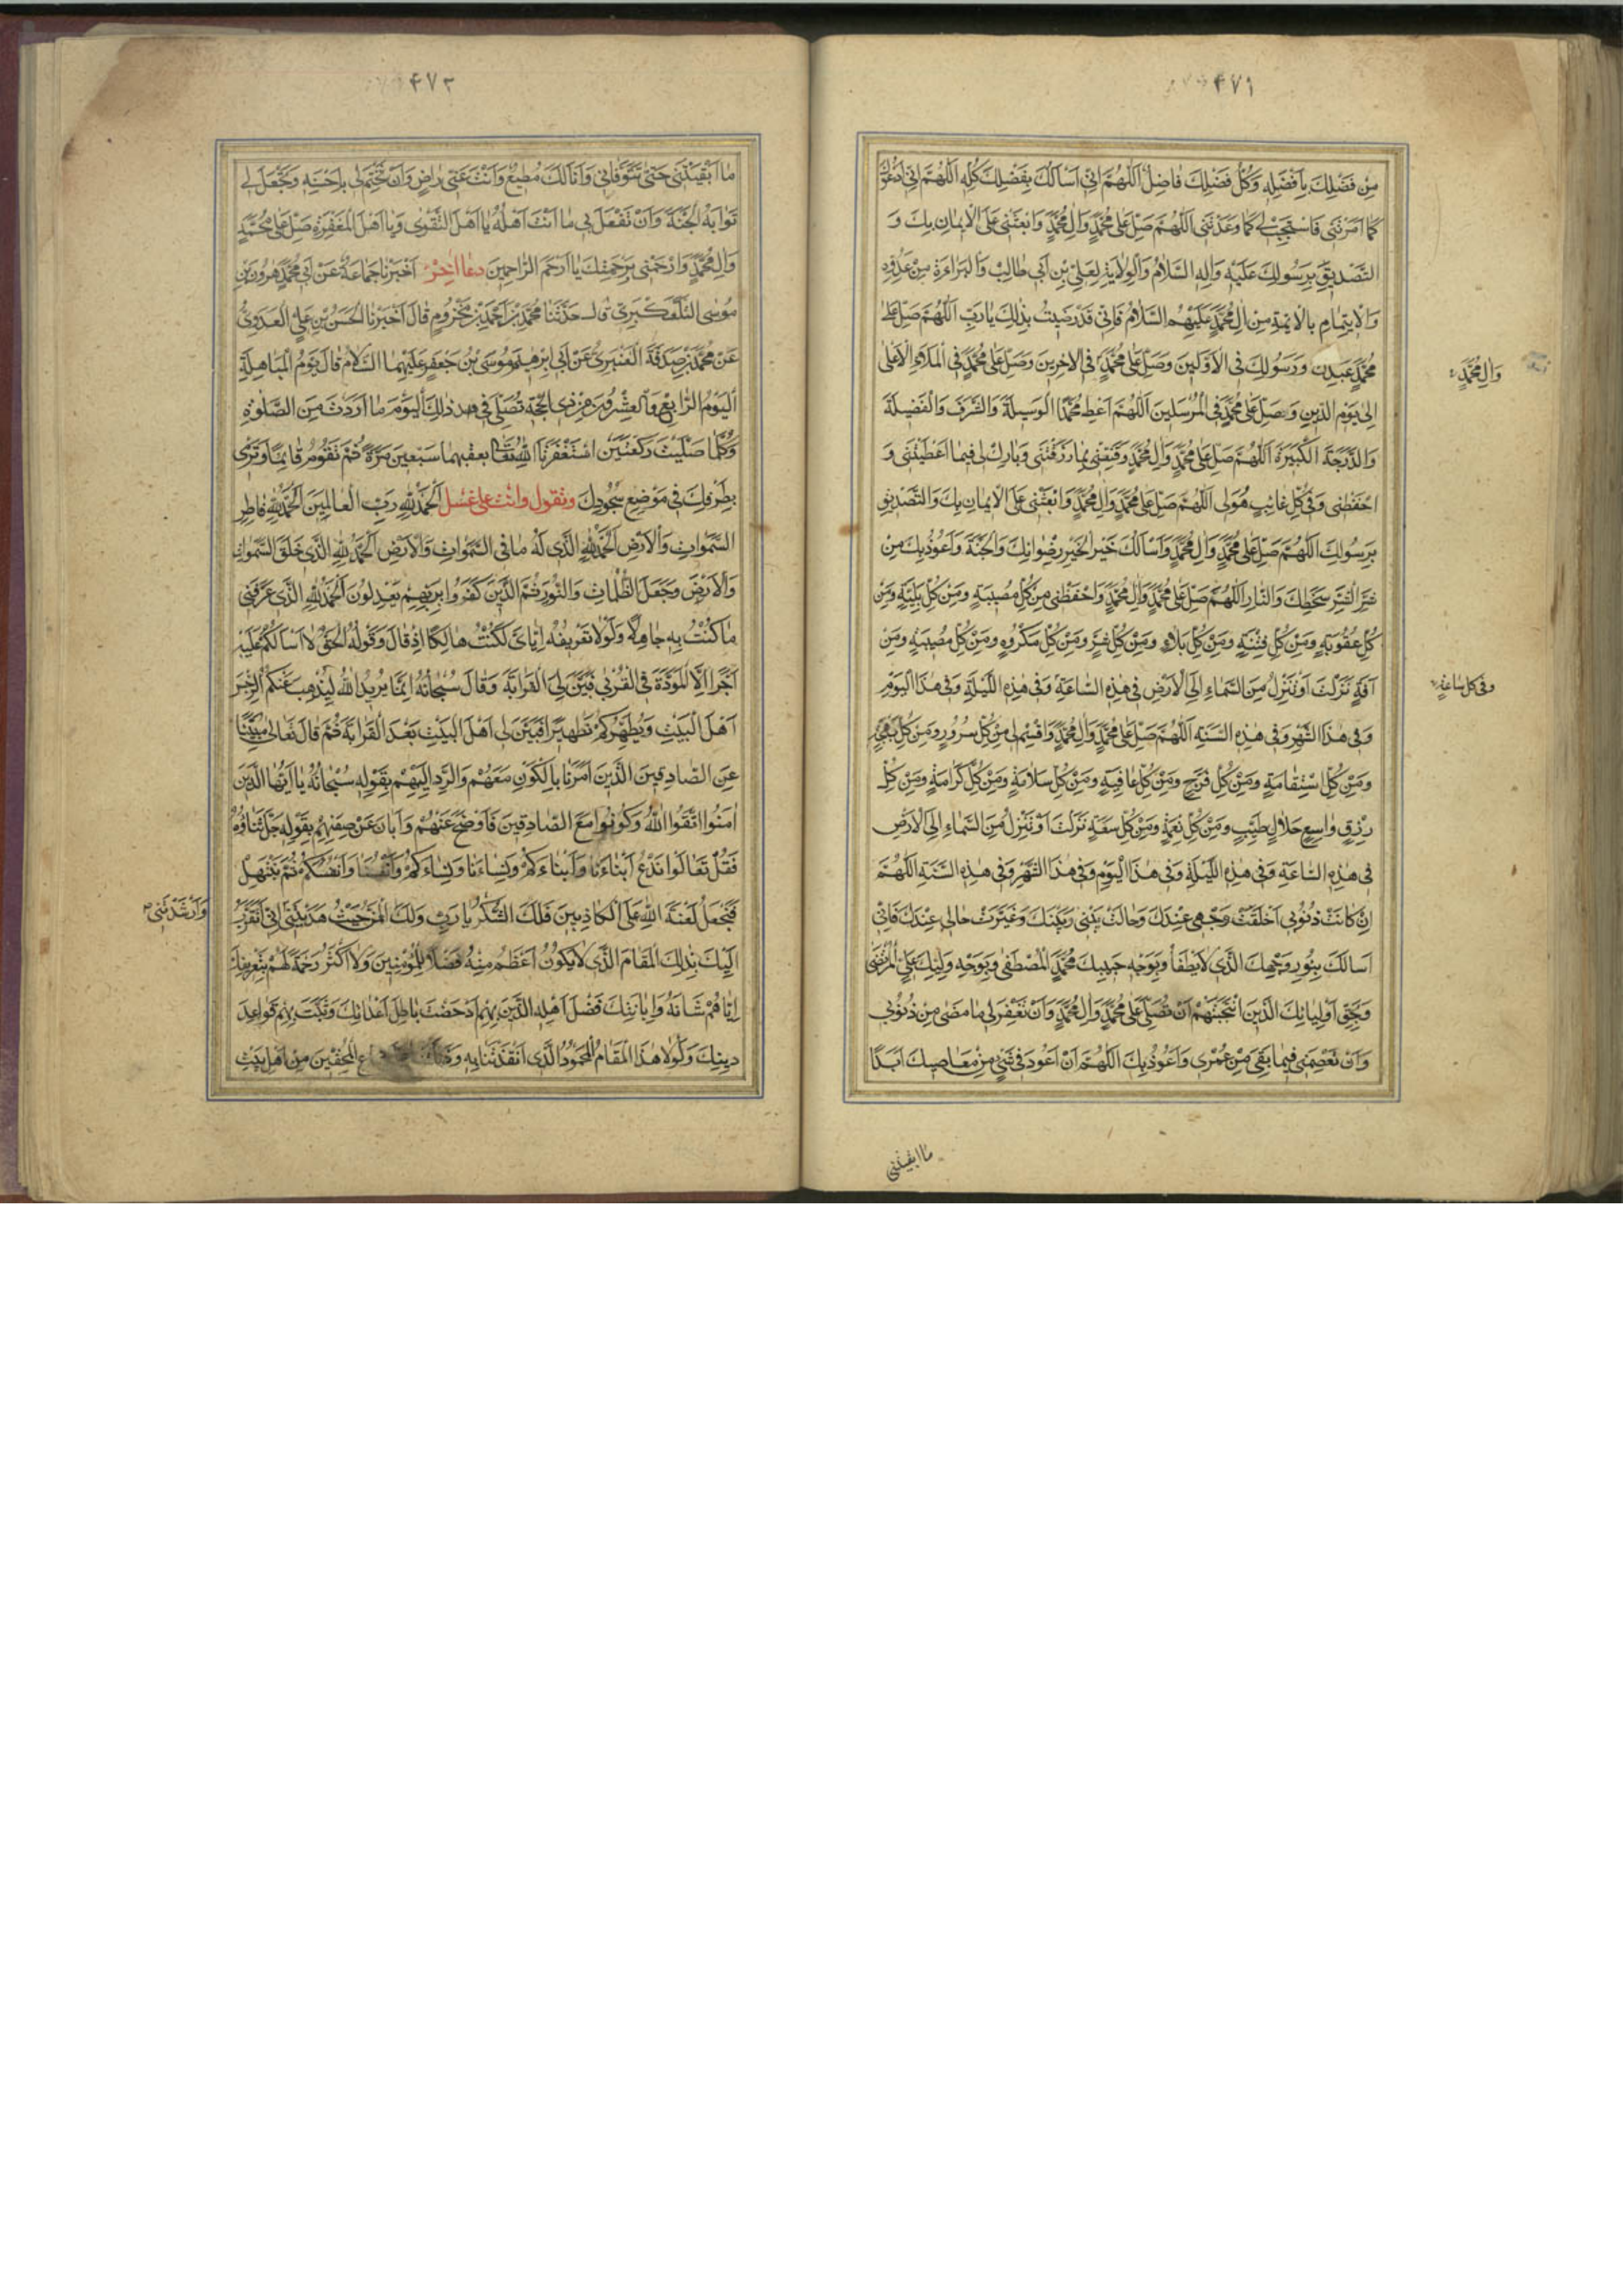 ۴۷۱
مِنْ فَضْلِكَ بِاَفْضَلِهِ وَكُلُّ فَضْلِكَ فَاضِلٌ اَللّٰهُمَّ اِنّى اَسْاَلُكَ بِفَضْلِكَ كُلِّهِ اَللّٰهُمَّ اِنّى اَدْعُوكَ
كَمَا اَمَرْتَنى فَاسْتَجِبْ لى كَمَا وَعَدْتَنى اَللّٰهُمَّ صَلِّ عَلى مُحَمَّدٍ وَالِ مُحَمَّدٍ وَابْعَثْنى عَلَى الْاِيمَانِ بِكَ وَ
التَّصْدِيقِ بِرَسُولِكَ عَلَيْهِ وَالِهِ السَّلَامُ وَالْوِلَايَةِ لِعَلِىِّ بْنِ اَبى طَالِبٍ وَالْبَرَاءَةِ مِنْ عَدُوِّهِ
وَالْاِيتِمَامِ بِالْاَئِمَّةِ مِنْ الِ مُحَمَّدٍ عَلَيْهِمُ السَّلَامُ فَاِنّى قَدْ رَضِيتُ بِذٰلِكَ يَا رَبِّ اَللّٰهُمَّ صَلِّ عَلى
مُحَمَّدٍ عَبْدِكَ وَرَسُولِكَ فِى الْاَوَّلِينَ وَصَلِّ عَلى مُحَمَّدٍ فِى الْاخِرِينَ وَصَلِّ عَلى مُحَمَّدٍ فِى الْمَلَاءِ الْاَعْلى
وَالِ مُحَمَّدٍ
اِلى يَوْمِ الدِّينِ وَصَلِّ عَلى مُحَمَّدٍ فِى الْمُرْسَلِينَ اَللّٰهُمَّ اَعْطِ مُحَمَّدًا الْوَسِيلَةَ وَالشَّرَفَ وَالْفَضِيلَةَ
وَالدَّرَجَةَ الْكَبِيرَةَ اَللّٰهُمَّ صَلِّ عَلى مُحَمَّدٍ وَالِ مُحَمَّدٍ وَقَنِّعْنى بِمَا رَزَقْتَنى وَبَارِكْ لى فِيمَا اَعْطَيْتَنى وَ
احْفَظْنى وَفى كُلِّ غَائِبٍ هُوَ لى اَللّٰهُمَّ صَلِّ عَلى مُحَمَّدٍ وَالِ مُحَمَّدٍ وَابْعَثْنى عَلَى الْاِيمَانِ بِكَ وَالتَّصْدِيقِ
بِرَسُولِكَ اَللّٰهُمَّ صَلِّ عَلى مُحَمَّدٍ وَالِ مُحَمَّدٍ وَاَسْاَلُكَ خَيْرَ الْخَيْرِ رِضْوَانَكَ وَالْجَنَّةَ وَاَعُوذُ بِكَ مِنْ
شَرِّ الشَّرِّ سَخَطِكَ وَالنَّارِ اَللّٰهُمَّ صَلِّ عَلى مُحَمَّدٍ وَالِ مُحَمَّدٍ وَاحْفَظْنى مِنْ كُلِّ مُصِيبَةٍ وَمِنْ كُلِّ بَلِيَّةٍ وَمِنْ
كُلِّ عُقُوبَةٍ وَمِنْ كُلِّ فِتْنَةٍ وَمِنْ كُلِّ بَلَاءٍ وَمِنْ كُلِّ شَرٍّ وَمِنْ كُلِّ مَكْرُوهٍ وَمِنْ كُلِّ مُصِيبَةٍ وَمِنْ
افَةٍ نَزَلَتْ اَوْ تَنْزِلُ مِنَ السَّمَاءِ اِلَى الْاَرْضِ فى هٰذِهِ السَّاعَةِ وَفى هٰذِهِ اللَّيْلَةِ وَفى هٰذَا الْيَوْمِ
وفى كل ساعة
وَفى هٰذَا الشَّهْرِ وَفى هٰذِهِ السَّنَةِ اَللّٰهُمَّ صَلِّ عَلى مُحَمَّدٍ وَالِ مُحَمَّدٍ وَاقْسِمْ لى مِنْ كُلِّ سُرُورٍ وَمِنْ كُلِّ بَهْجَةٍ
وَمِنْ كُلِّ اسْتِقَامَةٍ وَمِنْ كُلِّ فَرَجٍ وَمِنْ كُلِّ عَافِيَةٍ وَمِنْ كُلِّ سَلَامَةٍ وَمِنْ كُلِّ كَرَامَةٍ وَمِنْ كُلِّ
رِزْقٍ وَاسِعٍ حَلَالٍ طَيِّبٍ وَمِنْ كُلِّ نِعْمَةٍ وَمِنْ كُلِّ سَعَةٍ نَزَلَتْ اَوْ تَنْزِلُ مِنَ السَّمَاءِ اِلَى الْاَرْضِ
فى هٰذِهِ السَّاعَةِ وَفى هٰذِهِ اللَّيْلَةِ وَفى هٰذَا الْيَوْمِ وَفى هٰذَا الشَّهْرِ وَفى هٰذِهِ السَّنَةِ اَللّٰهُمَّ
اِنْ كَانَتْ ذُنُوبى اَخْلَقَتْ وَجْهى عِنْدَكَ وَحَالَتْ بَيْنى وَبَيْنَكَ وَغَيَّرَتْ حَالى عِنْدَكَ فَاِنّى
اَسْاَلُكَ بِنُورِ وَجْهِكَ الَّذى لَا يُطْفَأُ وَبِوَجْهِ حَبِيبِكَ مُحَمَّدٍ الْمُصْطَفى وَبِوَجْهِ وَلِيِّكَ عَلِىٍّ الْمُرْتَضى
وَبِحَقِّ اَوْلِيَائِكَ الَّذِينَ انْتَجَبْتَهُمْ اَنْ تُصَلِّىَ عَلى مُحَمَّدٍ وَالِ مُحَمَّدٍ وَاَنْ تَغْفِرَ لى مَا مَضى مِنْ ذُنُوبى
وَاَنْ تَعْصِمَنى فِيمَا بَقِىَ مِنْ عُمْرى وَاَعُوذُ بِكَ اَللّٰهُمَّ اَنْ اَعُودَ فى شَىْءٍ مِنْ مَعَاصِيكَ اَبَدًا
ما ابقيتنى
۴۷۲
مَا اَبْقَيْتَنى حَتّى تَتَوَفَّانى وَاَنَا لَكَ مُطِيعٌ وَاَنْتَ عَنّى رَاضٍ وَاَنْ تَخْتِمَ لى بِاَحْسَنِهِ وَتَجْعَلَ لى
ثَوَابَهُ الْجَنَّةَ وَاَنْ تَفْعَلَ بى مَا اَنْتَ اَهْلُهُ يَا اَهْلَ التَّقْوى وَيَا اَهْلَ الْمَغْفِرَةِ صَلِّ عَلى مُحَمَّدٍ
وَالِ مُحَمَّدٍ وَارْحَمْنى بِرَحْمَتِكَ يَا اَرْحَمَ الرَّاحِمِينَ دعا اخر اَخْبَرَنَا جَمَاعَةٌ عَنْ اَبى مُحَمَّدٍ هٰرُونَ بْنِ
مُوسَى التَّلَّعُكْبَرِىِّ قال حَدَّثَنَا مُحَمَّدُ بْنُ اَحْمَدَ بْنِ مَخْزُومٍ قَالَ اَخْبَرَنَا الْحَسَنُ بْنُ عَلِىٍّ الْعَدَوِىُّ
عَنْ مُحَمَّدِ بْنِ صَدَقَةَ الْعَنْبَرِىِّ عَنْ اَبى اِبْرٰهِيمَ مُوسَى بْنِ جَعْفَرٍ عَلَيْهِمَا السَّلَامُ قَالَ يَوْمُ الْمُبَاهِلَةِ
اَلْيَوْمُ الرَّابِعُ وَالْعِشْرُونَ مِنْ ذِى الْحِجَّةِ تُصَلّى فى ذٰلِكَ الْيَوْمِ مَا اَرَدْتَ مِنَ الصَّلٰوةِ
وَكُلَّمَا صَلَّيْتَ رَكْعَتَيْنِ اسْتَغْفَرْتَ اللّٰهَ تَعَالى بعقبهما سَبْعِينَ مَرَّةً ثُمَّ تَقُومُ قَائِمًا وَتَرْمى
بِطَرْفِكَ فى مَوْضِعِ سُجُودِكَ وتقول وانت على غسل اَلْحَمْدُ لِلّٰهِ رَبِّ الْعَالَمِينَ اَلْحَمْدُ لِلّٰهِ فَاطِرِ
السَّمٰوَاتِ وَالْاَرْضِ اَلْحَمْدُ لِلّٰهِ الَّذى لَهُ مَا فِى السَّمٰوَاتِ وَالْاَرْضِ اَلْحَمْدُ لِلّٰهِ الَّذى خَلَقَ السَّمٰوَاتِ
وَالْاَرْضَ وَجَعَلَ الظُّلُمَاتِ وَالنُّورَ ثُمَّ الَّذِينَ كَفَرُوا بِرَبِّهِمْ يَعْدِلُونَ اَلْحَمْدُ لِلّٰهِ الَّذى عَرَّفَنى
مَا كُنْتُ بِهِ جَاهِلًا وَلَوْلَا تَعْرِيفُهُ اِيَّاىَ لَكُنْتُ هَالِكًا اِذْ قَالَ وَقَوْلُهُ الْحَقُّ لَا اَسْاَلُكُمْ عَلَيْهِ
اَجْرًا اِلَّا الْمَوَدَّةَ فِى الْقُرْبى فَبَيَّنَ لِىَ الْقَرَابَةَ وَقَالَ سُبْحَانَهُ اِنَّمَا يُرِيدُ اللّٰهُ لِيُذْهِبَ عَنْكُمُ الرِّجْسَ
اَهْلَ الْبَيْتِ وَيُطَهِّرَكُمْ تَطْهِيرًا فَبَيَّنَ لى اَهْلَ الْبَيْتِ بَعْدَ الْقَرَابَةِ ثُمَّ قَالَ تَعَالى مُبَيِّنًا
عَنِ الصَّادِقِينَ الَّذِينَ اَمَرَنَا بِالْكَوْنِ مَعَهُمْ وَالرَّدِّ اِلَيْهِمْ بِقَوْلِهِ سُبْحَانَهُ يَا اَيُّهَا الَّذِينَ
اٰمَنُوا اتَّقُوا اللّٰهَ وَكُونُوا مَعَ الصَّادِقِينَ فَاَوْضَحَ عَنْهُمْ وَاَبَانَ عَنْ صِفَتِهِمْ بِقَوْلِهِ جَلَّ ثَنَاؤُهُ
فَقُلْ تَعَالَوْا نَدْعُ اَبْنَاءَنَا وَاَبْنَاءَكُمْ وَنِسَاءَنَا وَنِسَاءَكُمْ وَاَنْفُسَنَا وَاَنْفُسَكُمْ ثُمَّ نَبْتَهِلْ
فَنَجْعَلْ لَعْنَةَ اللّٰهِ عَلَى الْكَاذِبِينَ فَلَكَ الشُّكْرُ يَا رَبِّ وَلَكَ الْمَنُّ حَيْثُ هَدَيْتَنى اِنّى اَتَقَرَّبُ
وَاَرْشَدْتَنى
اِلَيْكَ بِذٰلِكَ الْمَقَامِ الَّذى لَا يَكُونُ اَعْظَمُ مِنْهُ فَضْلًا لِلْمُؤْمِنِينَ وَلَا اَكْثَرُ رَحْمَةً لَهُمْ بِتَعْرِيفِكَ
اِيَّاهُمْ شَانَهُ وَاِبَانَتِكَ فَضْلَ اَهْلِهِ الَّذِينَ بِهِمْ اَدْحَضْتَ بَاطِلَ اَعْدَائِكَ وَثَبَّتَّ بِهِمْ قَوَاعِدَ
دِينِكَ وَلَوْلَا هٰذَا الْمَقَامُ الْمَحْمُودُ الَّذى اَنْقَذْتَنَا بِهِ الْمُحِقِّينَ مِنْ اَهْلِ بَيْتِ